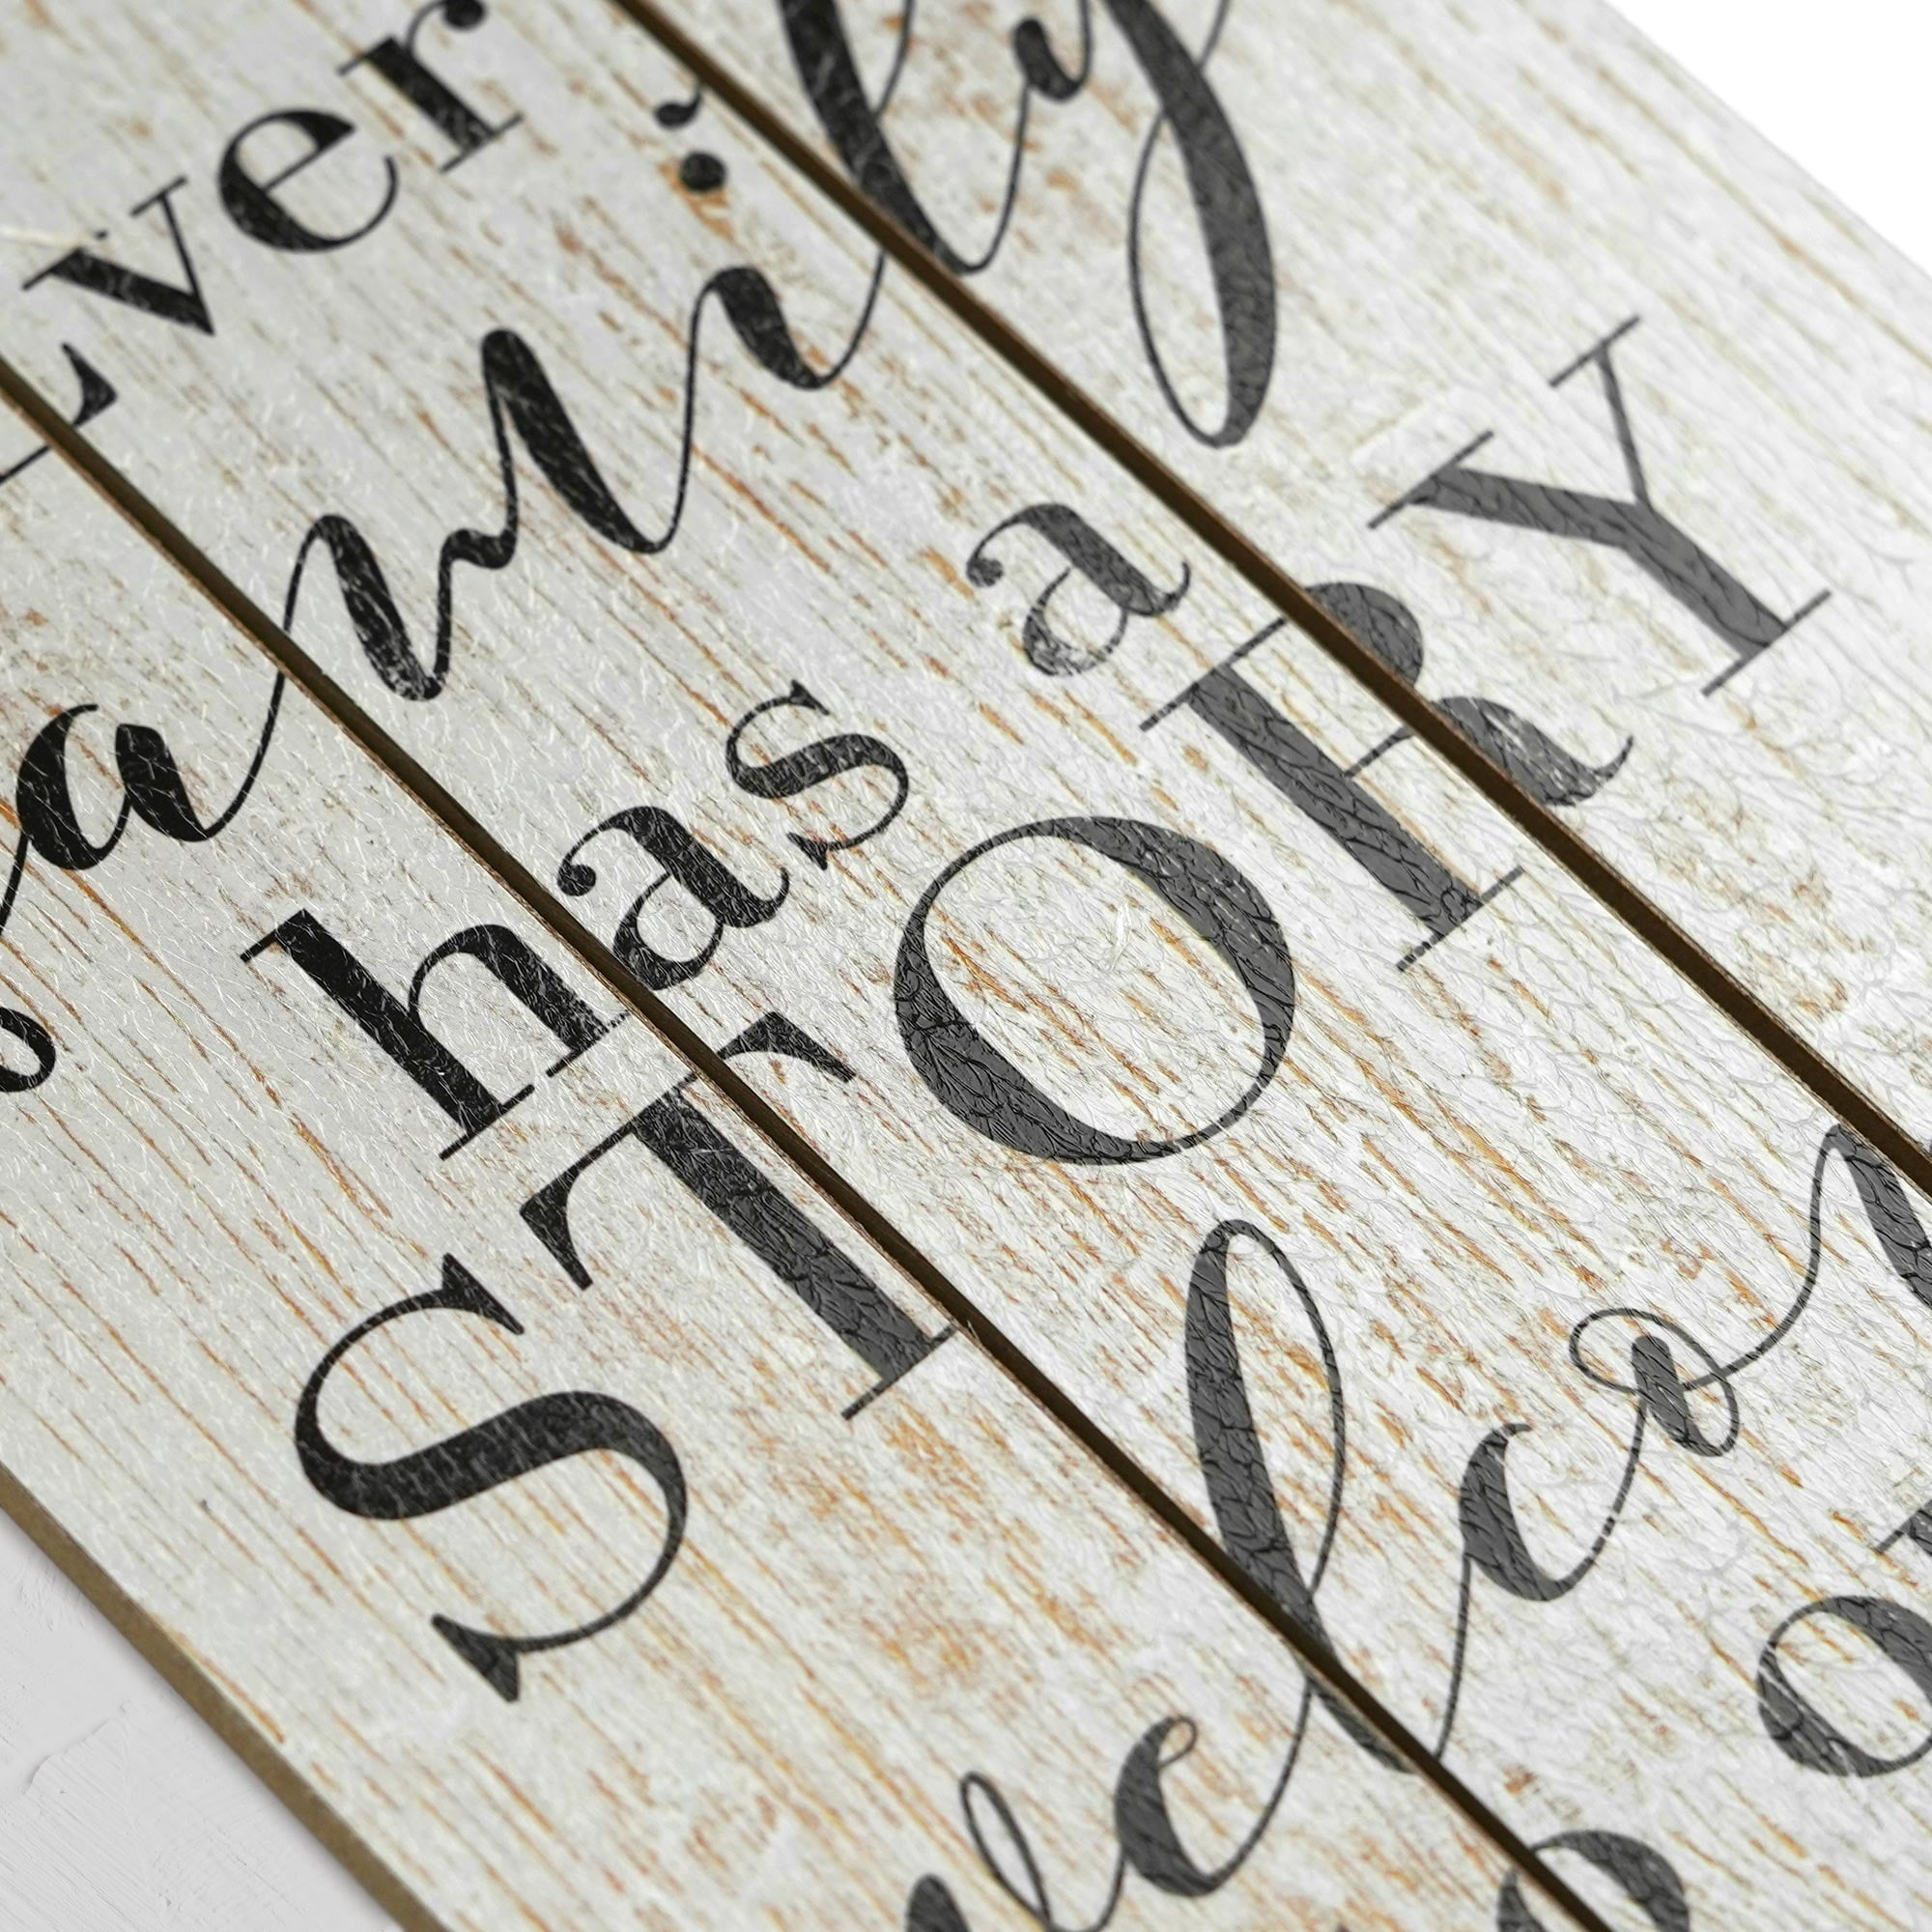 Ever
amily
has a
STORY
elco